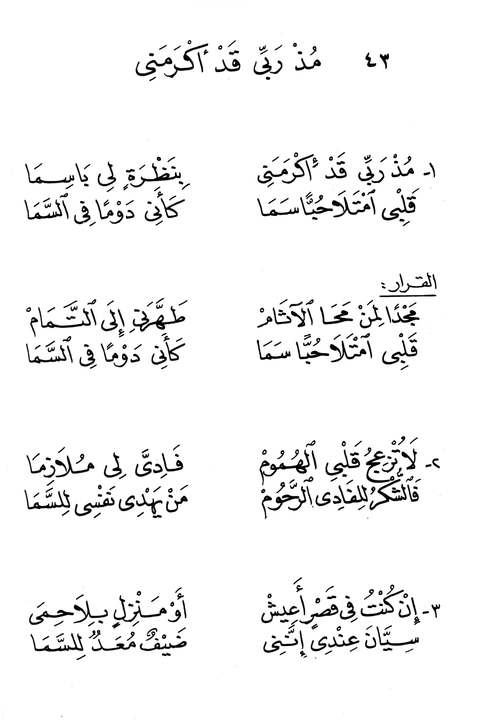 ٤٣ مُذْ رَبِّي قَدْ أَكْرَمَنِي
١- مُذْ رَبِّي قَدْ أَكْرَمَنِي بِنَظْرَةٍ لِي بَاسِمَا
قَلْبِي ٱمْتَلَا حُبًّا سَمَا كَأَنِّي دَوْمًا فِي ٱلسَّمَا
القرار:
مَجْدًا لِمَنْ مَحَا ٱلْآثَامْ طَهَّرَنِي إِلَى ٱلتَّمَامْ
قَلْبِي ٱمْتَلَا حُبًّا سَمَا كَأَنِّي دَوْمًا فِي ٱلسَّمَا
٢- لَا تُزْعِجُ قَلْبِي ٱلْهُمُومْ فَادِيَّ لِي مُلَازِمَا
فَٱلشُّكْرُ لِلفَادِي ٱلرَّحُومْ مَنْ يَهْدِي نَفْسِي لِلسَّمَا
٣- إِنْ كُنْتُ فِي قَصْرٍ أَعِيشْ أَوْ مَنْزِلٍ بِلَا حِمَى
سِيَّانَ عِنْدِي إِنَّنِي ضَيْفٌ مُعَدٌّ لِلسَّمَا